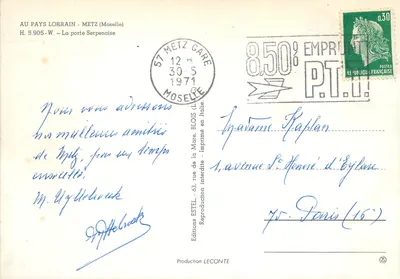 AU PAYS LORRAIN - METZ (Moselle)
H. S 905-W. - La porte Serpenoise
57 METZ GARE
12 H
30-5
1971
MOSELLE
8,50% EMPRUNT
P.T.T.
0,30
POSTES
REPUBLIQUE FRANCAISE
Nous vous adressons
nos meilleures amitiés
de Metz, par un temps
ensoleillé
M. Uyttebrouck
Editions ESTEL, 63, rue de la Mare, BLOIS
Reproduction interdite - Imprimé en Italie
Madame Kaplan
1, avenue St Honoré d'Eylau
75 - Paris (16)
Production LECONTE